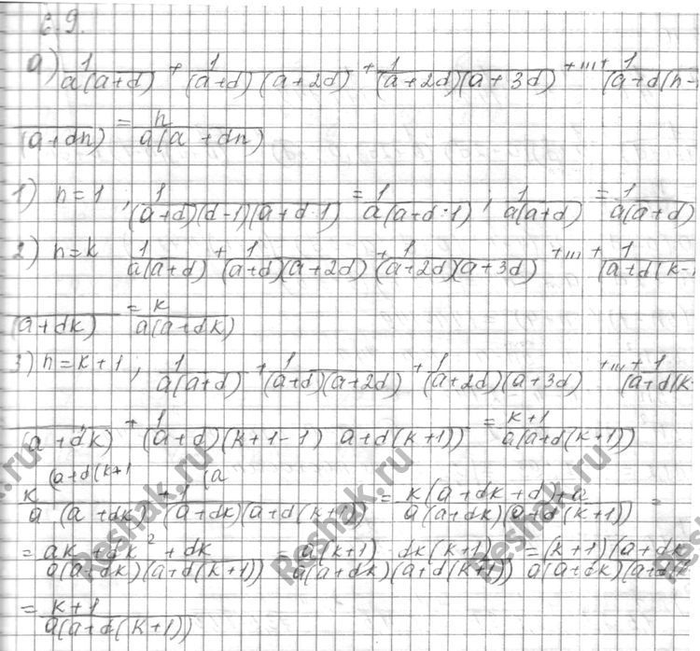 с. 9.
а) 1/(a(a+d)) + 1/((a+d)(a+2d)) + 1/((a+2d)(a+3d)) + ... + 1/((a+d(n-
(a+dn) = n/(a(a+dn))
1) n=1, 1/((a+d)(d-1)(a+d·1)) = 1/(a(a+d·1)); 1/(a(a+d)) = 1/(a(a+d))
2) n=k 1/(a(a+d)) + 1/((a+d)(a+2d)) + 1/((a+2d)(a+3d)) + ... + 1/((a+d(k-
(a+dk) = k/(a(a+dk))
3) n=k+1, 1/(a(a+d)) + 1/((a+d)(a+2d)) + 1/((a+2d)(a+3d)) + ... + 1/((a+d(k-
(a+dk) + 1/((a+d)(k+1-1) a+d(k+1)) = (k+1)/(a(a+d(k+1)))
(a+d(k+1 (a
k/(a (a+dk)) + 1/((a+dk)(a+d(k+1))) = (k(a+dk+d)+a)/(a(a+dk)(a+d(k+1))) =
= (ak+dk²+dk)/(a(a+dk)(a+d(k+1))) = (a(k+1) dk(k+1))/(a(a+dk)(a+d(k+1))) = (k+1)(a+dk)/(a(a+dk)(a+d
= (k+1)/(a(a+d(k+1)))
Reshak.ru Reshak.ru Reshak.ru Reshak.ru